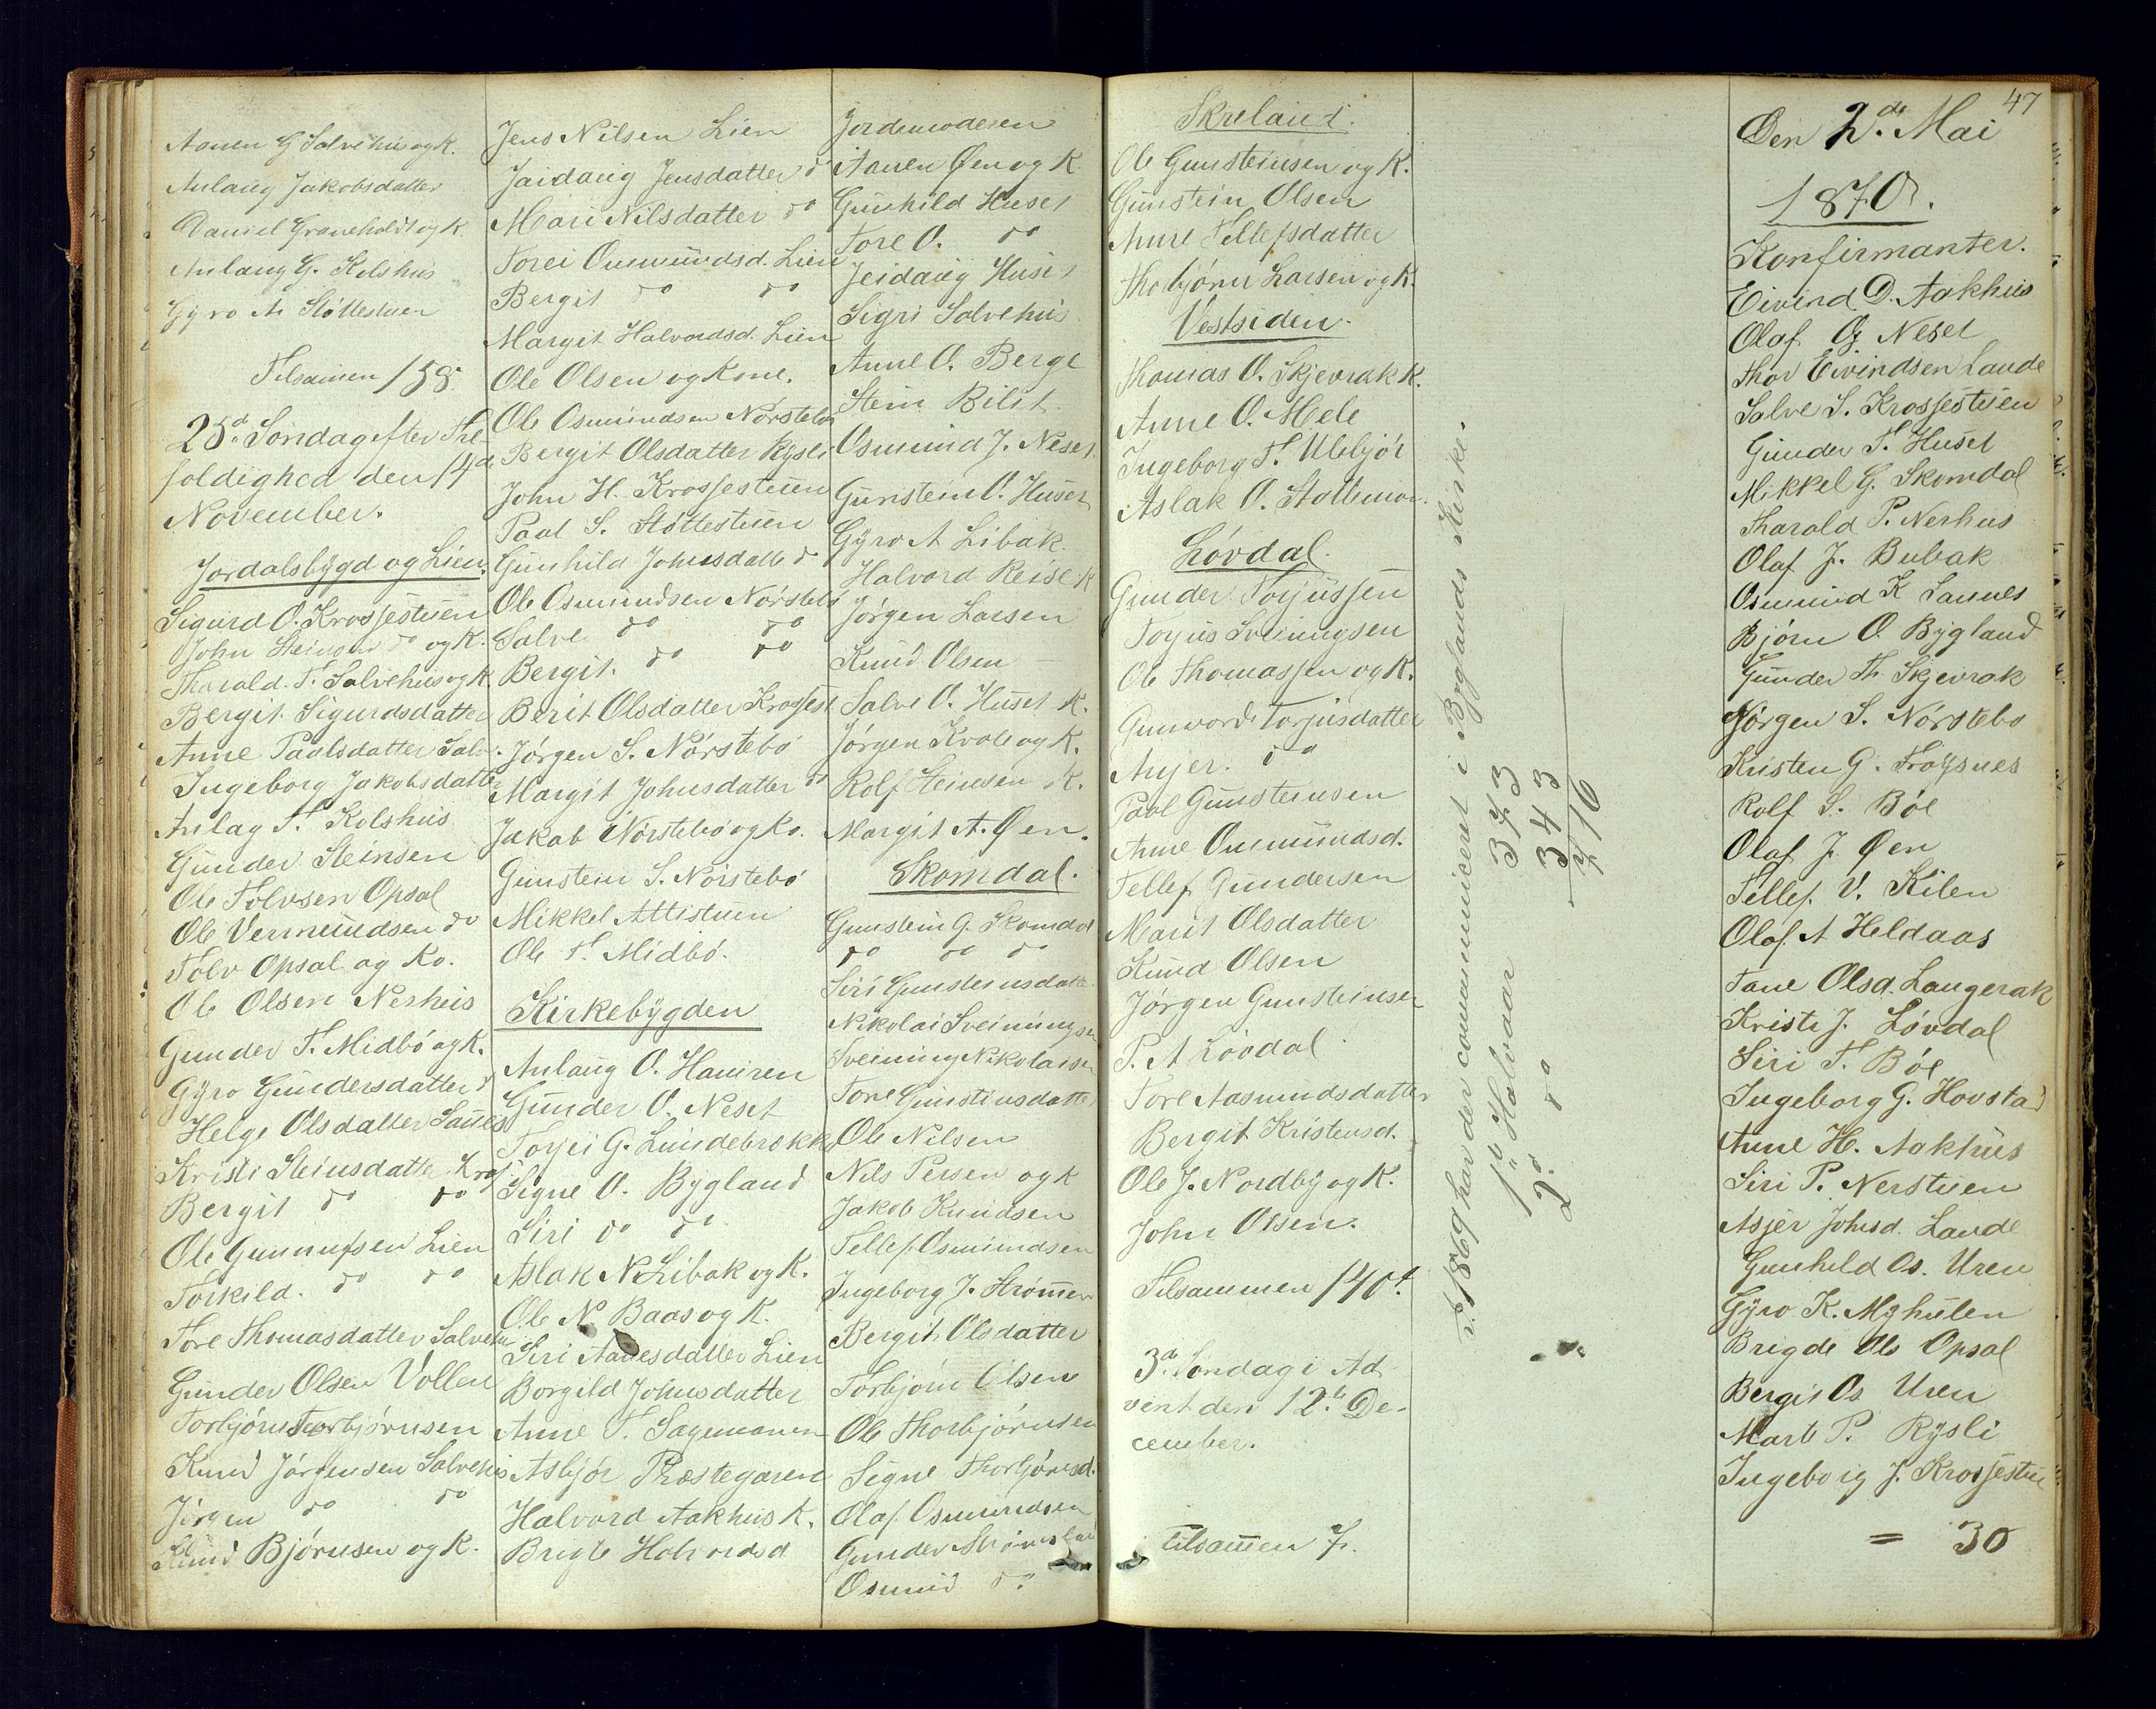 Aanen G Salvehus og K.
Anlaug Jakobsdatter
Daniel Graneholdt og K.
Anlaug G. Kilshus
Gyro A Støttestuen
Tilsamen 158.
25d. Søndag efter Tre-
foldighed den 14d
November.
Jordalsbygd og Lien.
Sigurd O. Krossestuen
John Steinsen do og K.
Tharald T. Salvehus og K.
Bergit Sigurdsdatter
Anne Paalsdatter Salv.
Ingeborg Jakobsdatte
Anlag T. Kilshus
Gunder Steinsen
Ole Tolvsen Opsal
Ole Vermundsen do
Tolv Opsal og Ko.
Ole Olsen Nerhus
Gunder T. Midbö og K.
Gyro Gundersdatter do
Helge Olsdatter Sannes
Kristi Steinsdatte Kros
Bergit do do
Ole Gunnufsen Lien
Torkild. do do
Tore Thomasdatter Salvehu
Gunder Olsen Vollen
Torbjörn Torbjörnsen
Knud Jörgensen Salvehus
Jörgen do do
Knud Björnsen og K.
Jens Nilsen Lien
Jaidaug Jensdatter do
Mari Nilsdatter do
Torei Ommundsd. Lien
Bergit do do
Margit Halvordsd. Lien
Ole Olsen og Kone.
Ole Osmundsen Nörstebö
Bergit Olsdatter Rysli
John H. Krossestuen
Paal S. Støttestuen
Gunhild Johnsdatte do
Ole Osmundsen Nörstebö
Salve do do
Bergit. do do
Berit Olsdatter Krossest
Jörgen S. Nörstebö
Margit Johnsdatter do
Jakob Nörstebö og Ko.
Gunstein S. Nörstebö
Mikkel Attistuen
Ole T. Midbö.
Kirkebygden
Anlaug O. Hamren
Gunder O. Neset
Torjei G. Lundebrekke
Signe O. Bygland
Siri do do
Aslak N Libak og K.
Ole N. Baas og K.
Siri Aanesdatter Lien
Borgild Johnsdatter
Anne T. Sagemoen
Asbjör Præstegaren
Halvord Aakhus K.
Brigte Halvordsd
Jordemoderen
Aanen Øen og K.
Gunhild Huset
Tore O. do
Jeidaug Huset
Sigri Salvehus
Anne O. Berge
Stein Bilit.
Osmund J. Neset
Gunstein O. Huset
Gyro A Libak.
Halvord Reise K
Jörgen Larsen
Knud Olsen
Salve O. Huset K.
Jörgen Kvale og K.
Rolf Steinsen K.
Margit A. Øen.
Skomdal.
Gunstein G. Skomdal
do do do
Siri Gunsteinsdatte
Nikolai Sveinungsen
Sveinung Nikolaisen
Tone Gunsteinsdatte
Ole Nilsen
Nils Persen og K
Jakob Knudsen
Tellef Osmundsen
Ingeborg J. Strömen
Bergit Olsdatter
Torbjörn Olsen
Ole Thorbjörnsen
Signe Thorbjörnsd.
Olaf Osmundsen
Gunder
Osmund do.
Skreland.
Ole Gunsteinsen og K.
Gunstein Olsen
Anne Tellefsdatter
Thorbjörn Larsen og K.
Vestsiden.
Thomas O. Skjevrak K.
Anne O. Mele
Ingeborg T. Ulebjör
Aslak O. Stallemo
Lövdal.
Gunder Torjussen
Torjus Sveinungsen
Ole Thomassen og K.
Gunvord Torjusdatter
Anjer. do
Paal Gunsteinsen
Anne Ommundsd.
Tellef Gundersen
Marit Olsdatter
Knud Olsen
Jörgen Gunsteinsen
P. A Lövdal
Tore Aasmundsdatter
Bergit Kristensd.
Ole J. Nordby og K.
John Olsen.
Tilsammen 140.
3d. Søndag i Ad
vent den 12te De-
cember.
Tilsamen 7.
I 1869 har der communiceret i Byglands Kirke.
1te Halvaar 373
2d. do 343
716
47
Den 2de. Mai
1870.
Konfirmanter.
Eivind D. Aakhus
Olaf G. Neset
Thor Eivindsen Lande
Salve S. Krossestuen
Gunder T. Huset
Mikkel G. Skomdal
Tharald P. Nerhus
Olaf J. Bubak
Osmund K Sannes
Björn O. Bygland
Gunder Th Skjevrak
Jörgen S. Nörstebö
Kristen G. Frøysnes
Rolf S. Böe
Olaf J. Øen
Tellef V. Kilen
Olaf A Heldaas
Tane Olsd. Langerak
Kristi J. Lövdal
Siri T. Böe
Ingeborg G. Hovstad
Anne H. Aakhus
Siri P. Nerstuen
Asjer Johnsd. Lande
Gunhild Os. Uren
Gyro K. Myhulen
Brigde Ols Opsal
Bergit Os Uren
Marte P. Rysli
Ingeborg J. Krossestue
= 30